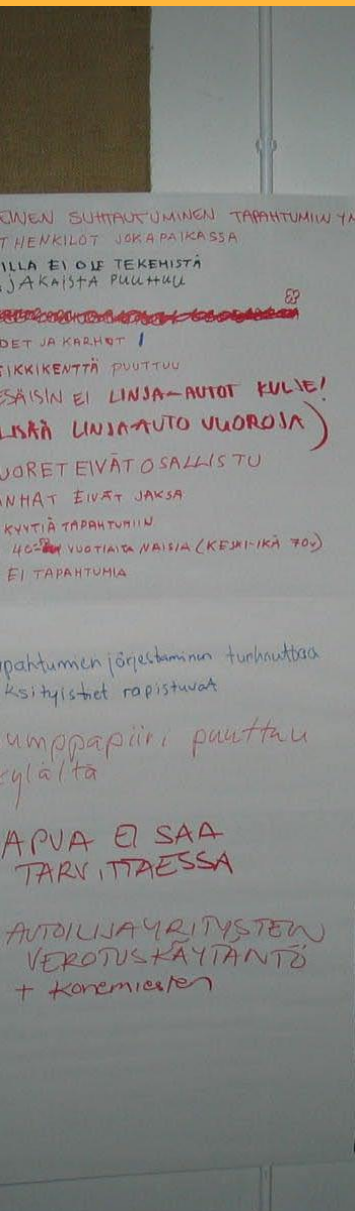 EINEN SUHTAUTUMINEN TAPAHTUMIIN YM
T HENKILÖT JOKAPAIKASSA
ILLA EI OLE TEKEMISTÄ
JAKAISTA PUUTTUU
DET JA KARHUT !
TIKKIKENTTÄ PUUTTUU
ESÄISIN EI LINJA-AUTOT KULJE!
LISÄÄ LINJA-AUTO VUOROJA)
UORET EIVÄT OSALLISTU
ANHAT EIVÄT JAKSA
KYYTIÄ TAPAHTUMIIN
VUOTIAITA NAISIA (KESKI-IKÄ 70v)
EI TAPAHTUMIA
pahtumien järjestäminen turhauttaa
ksityistiet rapistuvat
umppapiiri puuttuu
kylältä
APUA EI SAA
TARVITTAESSA
AUTOILIJAYRITYSTEN
VEROTUSKÄYTÄNTÖ
+ Konemiesten